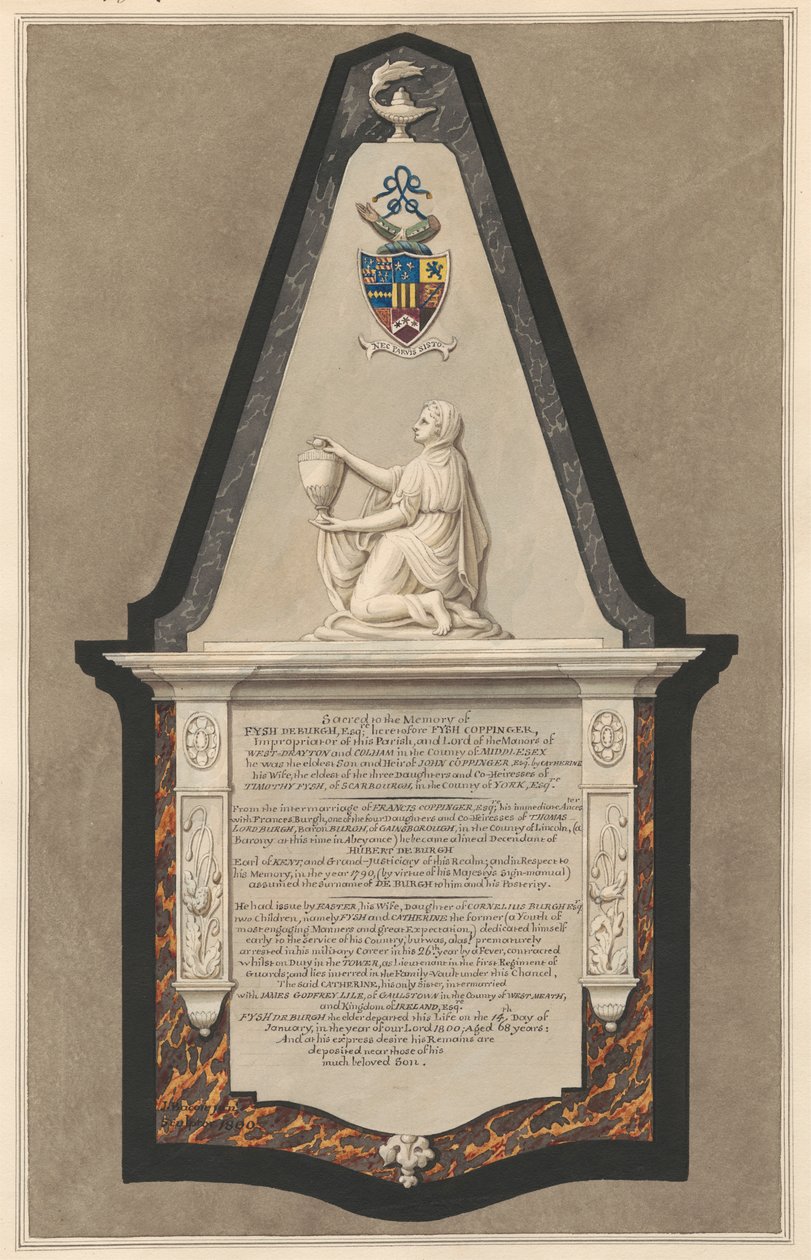 NEC PARVIS SISTO.
Sacred to the Memory of
FYSH DE BURGH, Esqre. heretofore FYSH COPPINGER,
Impropriator of this Parish, and Lord of the Manors of
WEST-DRAYTON and COLHAM in the County of MIDDLESEX
he was the eldest Son and Heir of JOHN COPPINGER, Esq. by CATHERINE
his Wife, the eldest of the three Daughters and Co-Heiresses of
TIMOTHY FYSH, of SCARBOURGH, in the County of YORK, Esqre.
From the intermarriage of FRANCIS COPPINGER, Esqre; his immediate Ancester
with Frances Burgh, one of the four Daughters and Co-Heiresses of THOMAS
LORD BURGH, Baron BURGH, of GAINSBOROUGH, in the County of Lincoln, (a
Barony at this time in Abeyance) he became a lineal Decendant of
HUBERT DE BURGH
Earl of KENT, and Grand-Justiciary of this Realm; and in Respect to
his Memory, in the year 1790, (by virtue of his Majesty's Sign-manual)
assumed the Surname of DE BURGH to him and his Posterity.
He had issue by EASTER, his Wife, Daughter of CORNELIUS BURGH Esqr.
two Children, namely FYSH and CATHERINE the former (a Youth of
most engaging Manners and great Expectation,) dedicated himself
early to the Service of his Country, but was, alas! prematurely
arrested in his military Career in his 26th year by a Fever, contracted
whilst on Duty in the TOWER, as Lieutenant in the first Regiment of
Guards; and lies interred in the Family-Vault under this Chancel,
The said CATHERINE, his only Sister, intermarried
with JAMES GODFREY LILE, of GAULSTOWN in the County of WEST, MEATH,
and Kingdom of IRELAND, Esqre.
FYSH DE BURGH the elder departed this Life on the 14th Day of
January, in the year of our Lord 1800; Aged 68 years:
And at his express desire his Remains are
deposited near those of his
much beloved Son.
Sculptor 1800